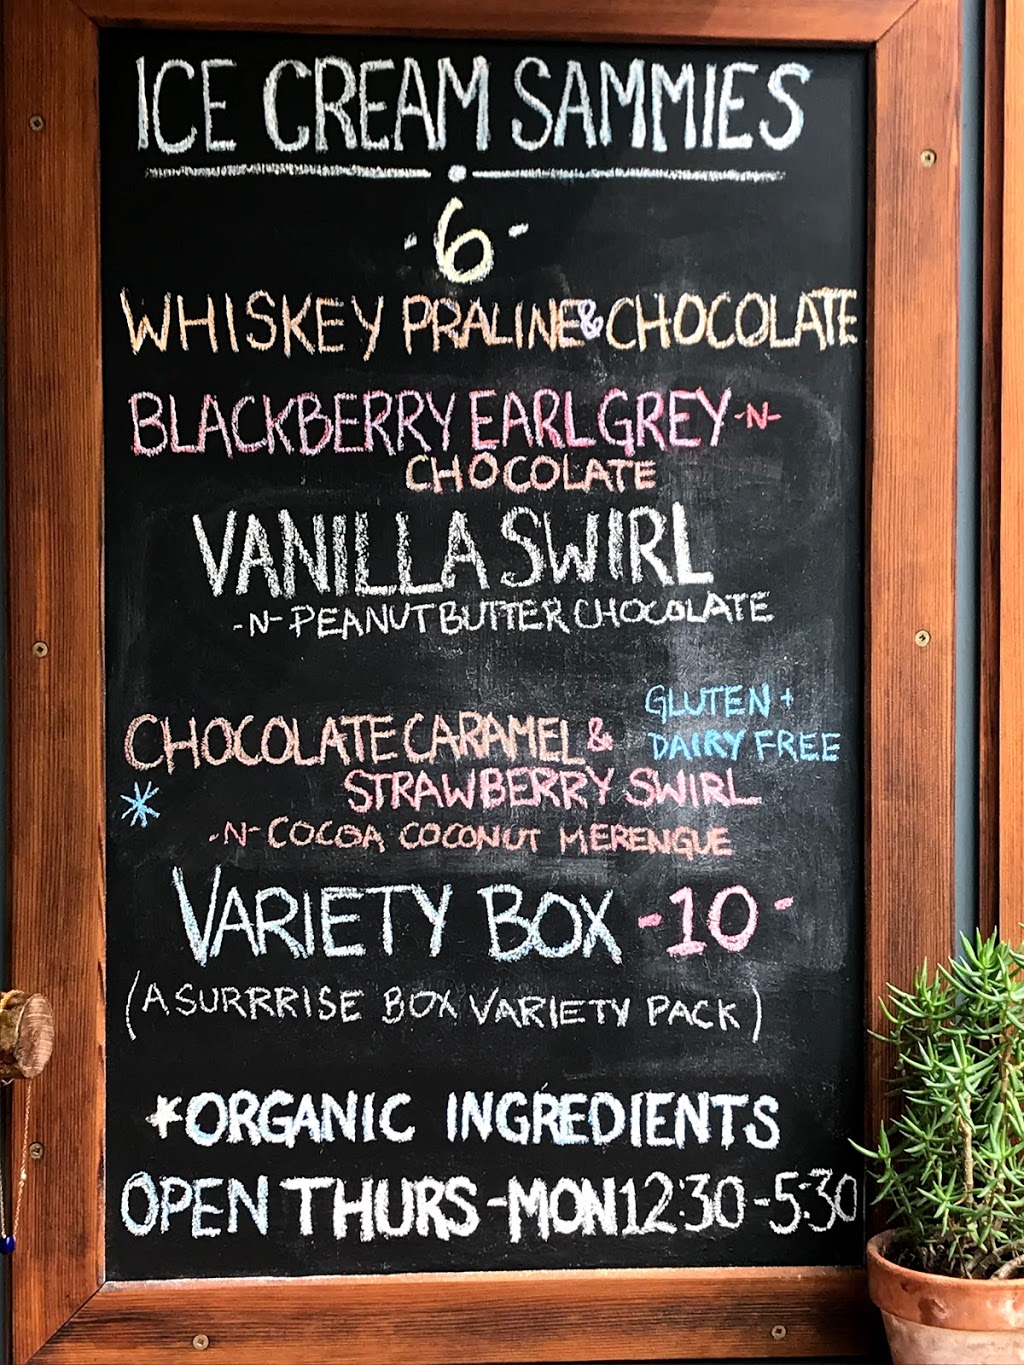 ICE CREAM SAMMIES
-6-
WHISKEY PRALINE & CHOCOLATE
BLACKBERRY EARL GREY -N-
CHOCOLATE
VANILLA SWIRL
-N- PEANUT BUTTER CHOCOLATE
GLUTEN +
DAIRY FREE
CHOCOLATE CARAMEL &
* STRAWBERRY SWIRL
-N- COCOA COCONUT MERENGUE
VARIETY BOX -10-
(A SURRRISE BOX VARIETY PACK)
*ORGANIC INGREDIENTS
OPEN THURS-MON 12:30-5:30